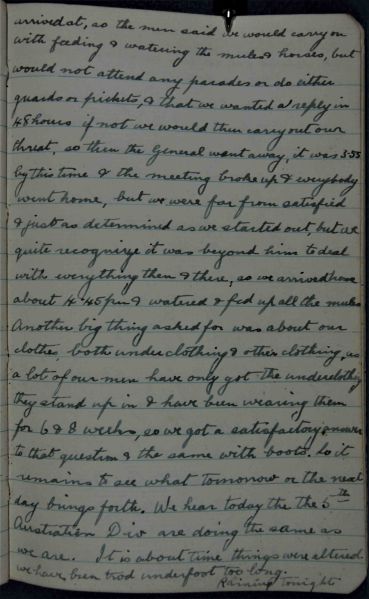 arrived at, so the men said we would carry on
with feeding & watering the mules & horses, but
would not attend any parades or do either
guards or pickets, & that we wanted a reply in
48 hours if not we would then carry out our
threat, so then the General want away, it was 3.55
by this time & the meeting broke up & everybody
went home, but we were far from satisfied
& just as determined as we started out, but we
quite recognize it was beyond him to deal
with everything then & there, so we arrived home
about 4.45pm & watered & fed up all the mules
Another big thing asked for was about our
clothes, both underclothing & other clothing, as
a lot of our men have only got the underclothing
they stand up in & have been wearing them
for 6 & 8 weeks, so we got a satisfactory answer
to that question & the same with boots. So it
remains to see what tomorrow or the next
day brings forth. We hear today the the 5th
Australian Div are doing the same as
we are. It is about time things were altered
we have been trod underfoot too long.
Raining tonight